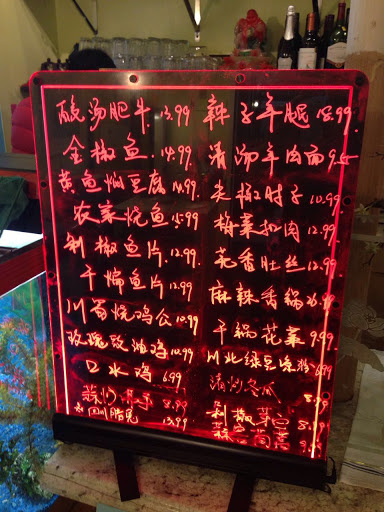 酸汤肥牛 13.99
金椒鱼 14.99
黄鱼焖豆腐 14.99
农家烧鱼 15.99
剁椒鱼片 12.99
干煸鱼片 12.99
川蜀烧鸡公 10.99
玫瑰豉油鸡 10.99
口水鸡 6.99
8.99
四川腊 13.99
辣子羊腿 18.99
清汤羊肉面 9.
尖椒肘子 10.99
梅菜扣肉 12.99
花香肚丝 12.99
麻辣香锅
干锅花菜 9.99
川北绿豆凉粉 6.99
清炒冬瓜
剁椒芽 8.99